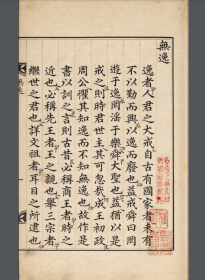 無逸
逸者人君之大戒自古有國家者未有
不以勤而興以逸而廢也益戒舜曰罔
游于逸罔淫于樂舜大聖也益猶以是
戒之則時君世主其可忽哉成王初政
周公懼其知逸而不知無逸也故作是
書以訓之言則古昔必稱商王者時之
近也必稱先王者王之親也舉三宗者
繼世之君也詳文祖者耳目之所逮也